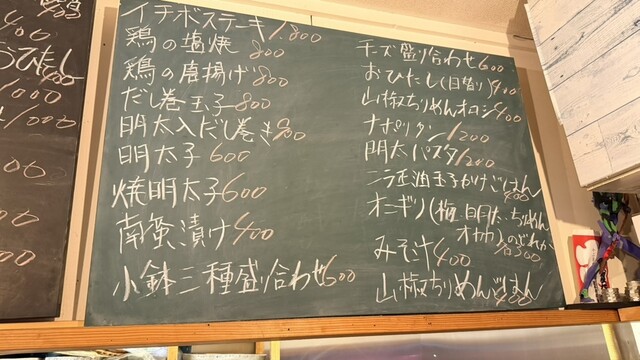 イチボステーキ 1,800
鶏の塩焼 800
鶏の唐揚げ 800
だし巻玉子 800
明太入だし巻き 900
明太子 600
焼明太子 600
南蛮漬け 400
小鉢三種盛り合わせ 600
チーズ盛り合わせ 600
おひたし(日替り) 400
山椒ちりめんオロシ 400
ナポリタン 1200
明太パスタ 1200
ニラ醤油玉子かけごはん
オニギリ(梅、明太、ちりめん
オカカ)のどれか
各300
みそ汁 400
山椒ちりめんごはん
400
うひたし
400
1000
1000